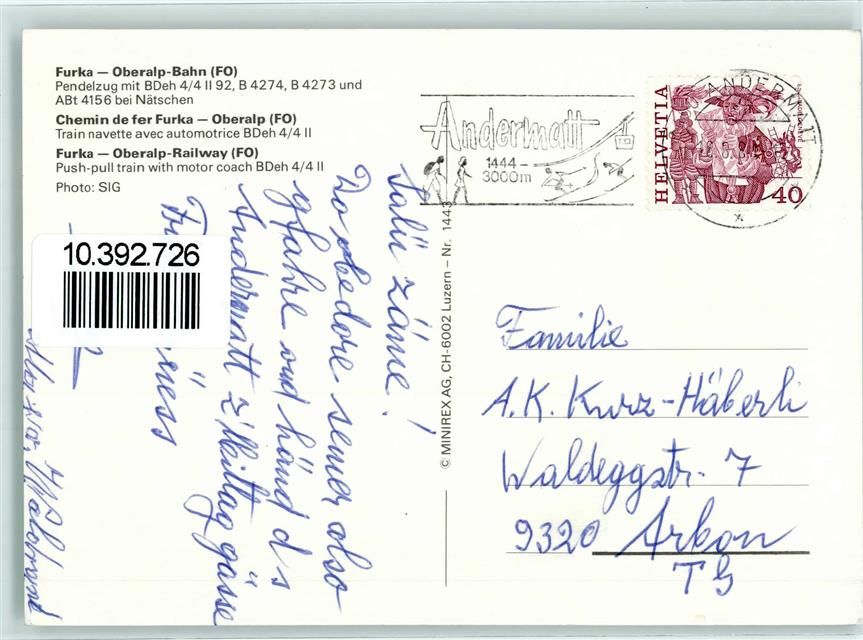 Furka — Oberalp-Bahn (FO)
Pendelzug mit BDeh 4/4 II 92, B 4274, B 4273 und
ABt 4156 bei Nätschen
Chemin de fer Furka — Oberalp (FO)
Train navette avec automotrice BDeh 4/4 II
Furka — Oberalp-Railway (FO)
Push-pull train with motor coach BDeh 4/4 II
Photo: SIG
Andermatt
1444 –
3000m
ANDERMATT
HELVETIA
40
10.392.726
© MINIREX AG, CH-6002 Luzern – Nr. 1443
Salü zäme!
Do obedore semer also
gfahre ond händ d s
Andermatt z'Mittag gässe
Familie
A.K. Kurz-Häberli
Waldeggstr. 7
9320 Arbon
TG